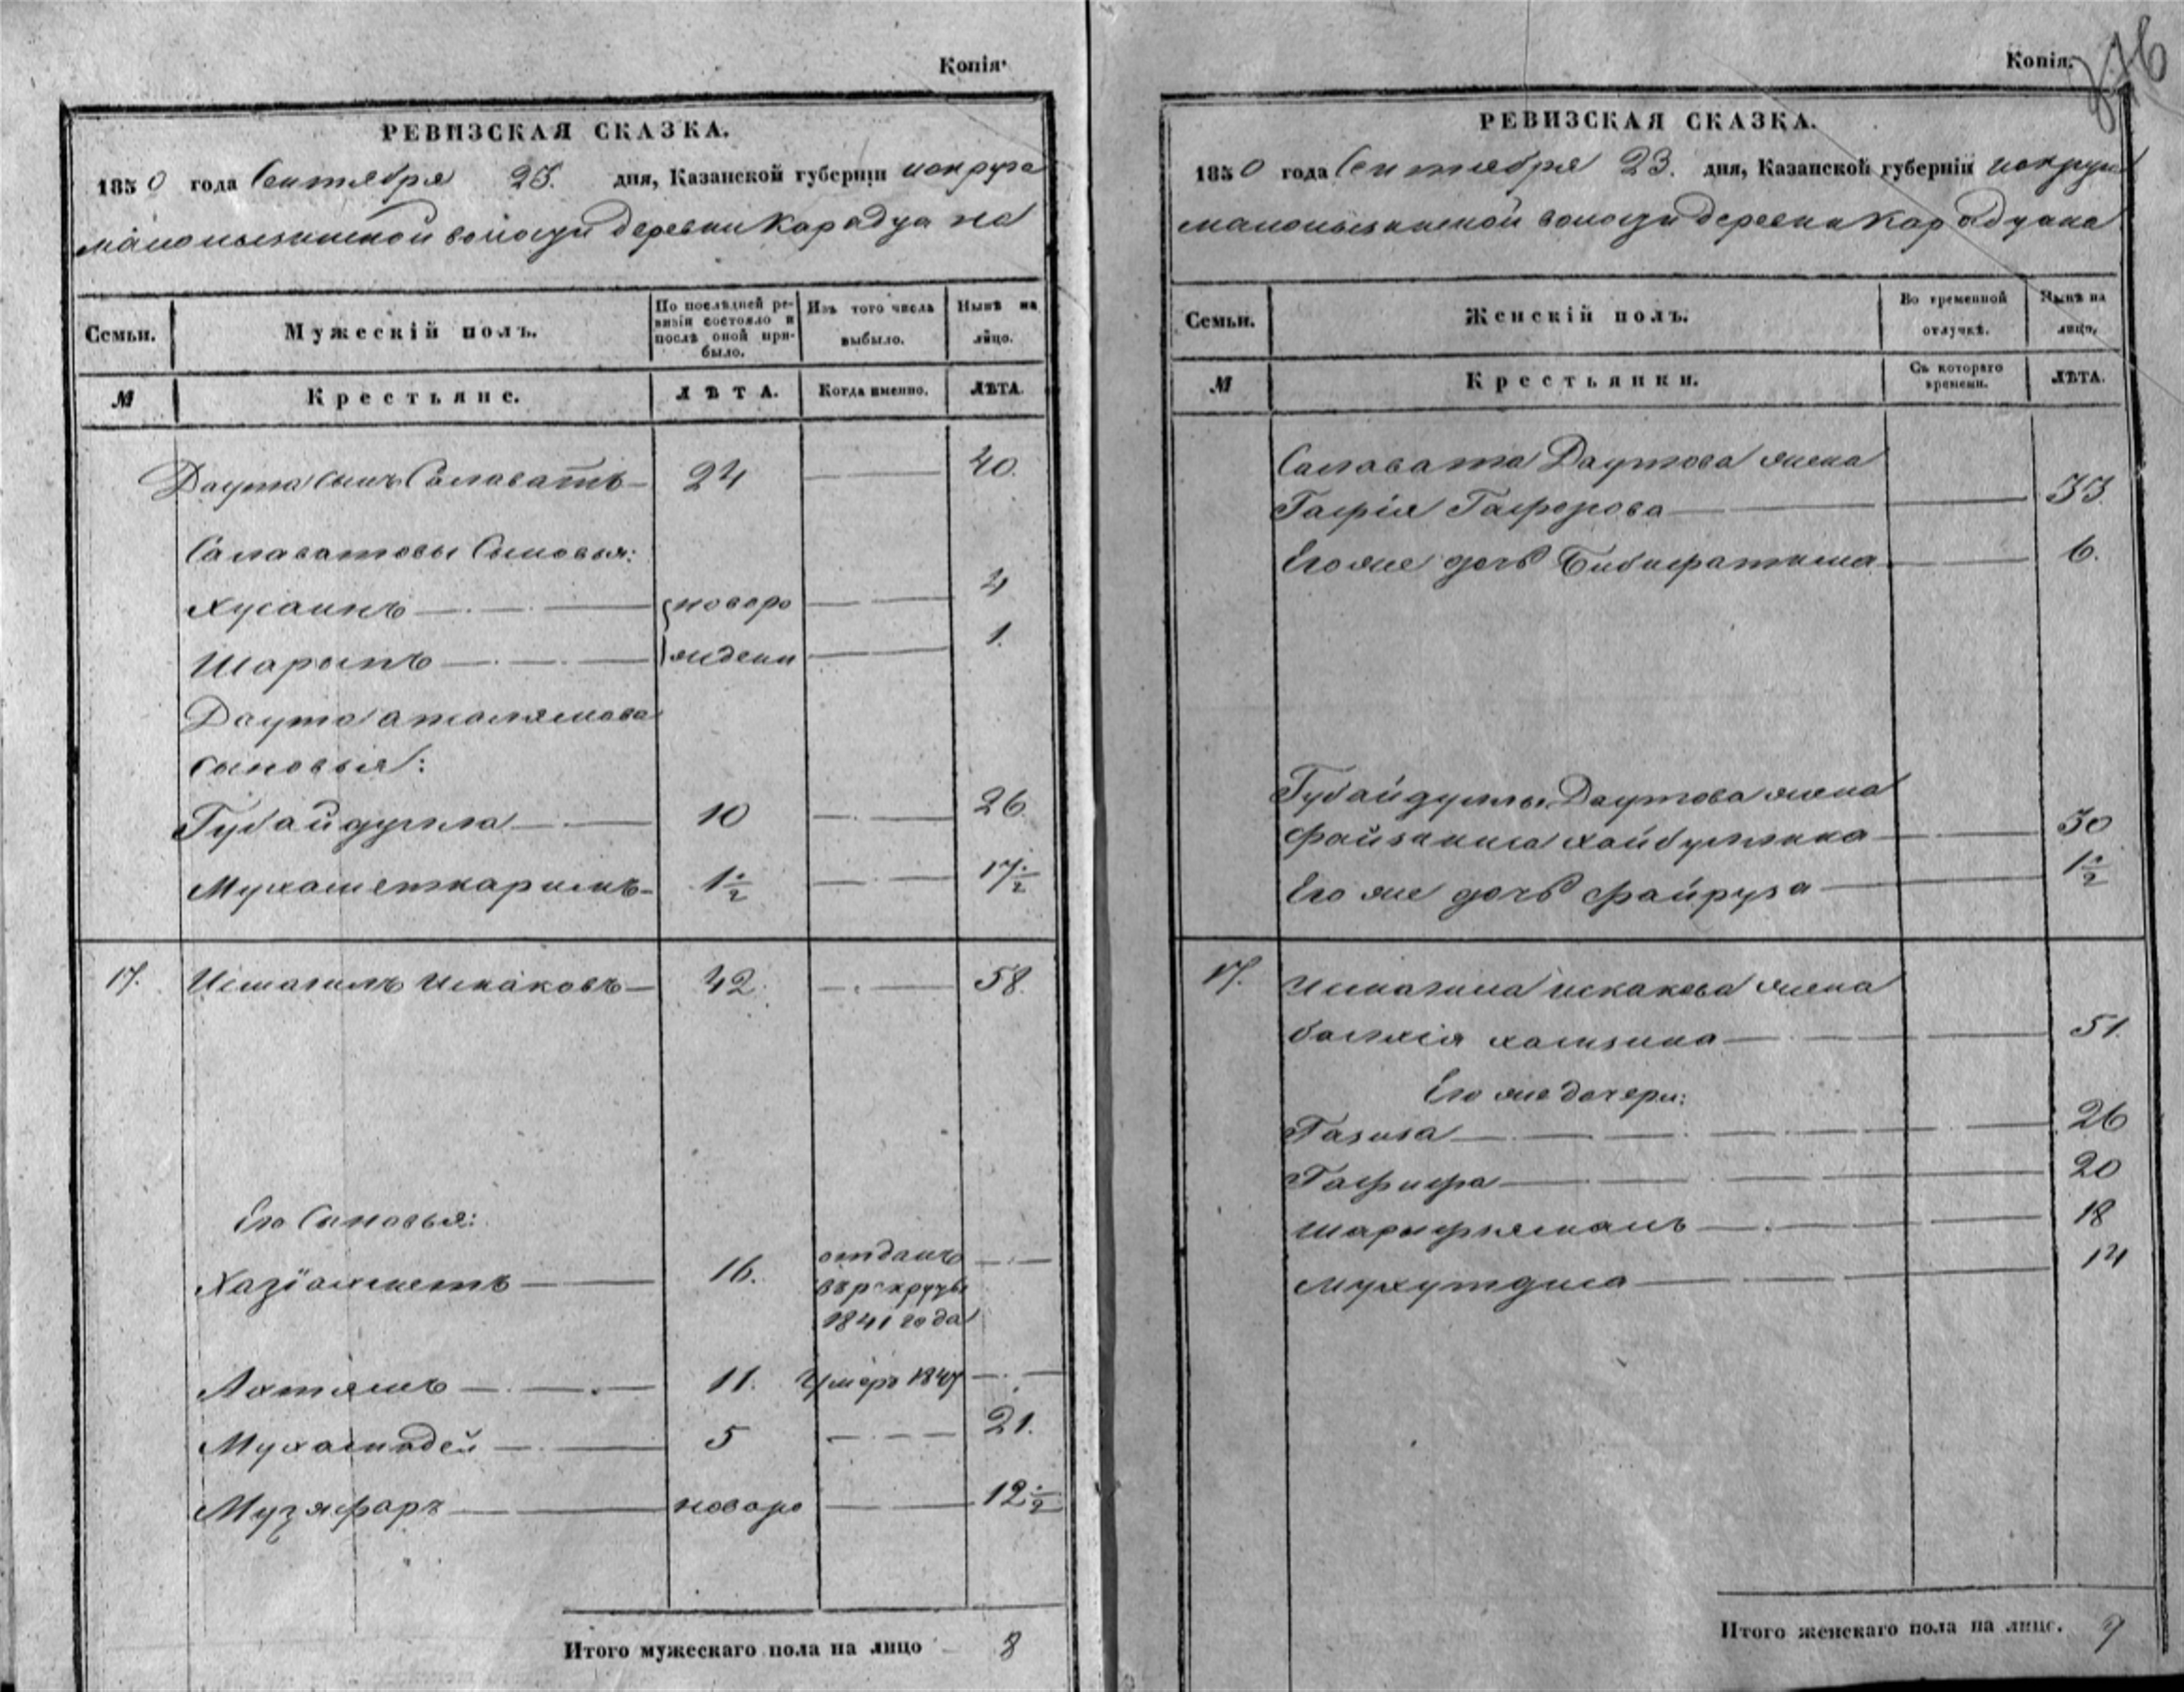 Копія.
РЕВИЗСКАЯ СКАЗКА.
1850 года Сентября 23. дня, Казанской губерніи и округа
деревни Карадуана
Семьи.
Мужескій полъ.
По послѣдней ре-
визіи состояло и
послѣ оной при-
было.
Изъ того числа
выбыло.
Нынѣ на
лицо.
№
Крестьяне.
ЛѢТА.
Когда именно.
ЛѢТА.
Даута сынъ Салаватъ 24 40.
Салаватовы Сыновья:
Хусаинъ новоро 4
Шарыпъ ждени 1.
Даута
сыновья:
Губайдулла 10 26.
Мухаметкаримъ 1 1/2 17 1/2
17. Исмагилъ Искаковъ 42. 58.
Его Сыновья:
Хазіахметъ 16. отданъ
въ рекруты
1841 года
Ахтямъ 11. Умеръ 1847
Мухамадей 5 21.
Музяфаръ новоро 12 1/2
Итого мужескаго пола на лицо 8
Копія.
РЕВИЗСКАЯ СКАЗКА.
1850 года Сентября 23. дня, Казанской губерніи и округа
деревни Карадуана
Семьи.
Женскій полъ.
Во временной
отлучкѣ.
Нынѣ на
лицо.
№
Крестьянки.
Съ котораго
времени.
ЛѢТА.
Салавата Даутова жена
Гафія Гафорова 33.
Его же дочь Бибифатима 6.
Губайдуллы Даутова жена
Файзаниса Хайбуллина 30
Его же дочь Файруза 1 1/2
17. Исмагила Искакова жена
Хамзина 51.
Его же дочери:
Газиза 26
Гафифа 20
Шарифжамалъ 18
14
Итого женскаго пола на лицо. 9